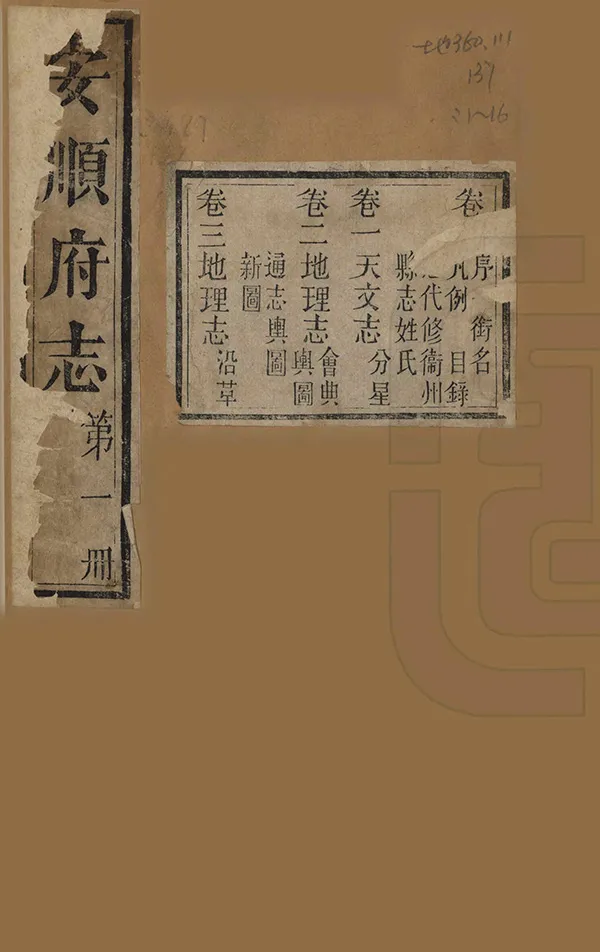 安順府志 第一冊
地360.111
137
:1~16
卷
序 銜名
凡例 目錄
代修衞州
縣志姓氏
卷一天文志 分星
卷二地理志 會典
輿圖
通志輿圖
新圖
卷三地理志 沿革